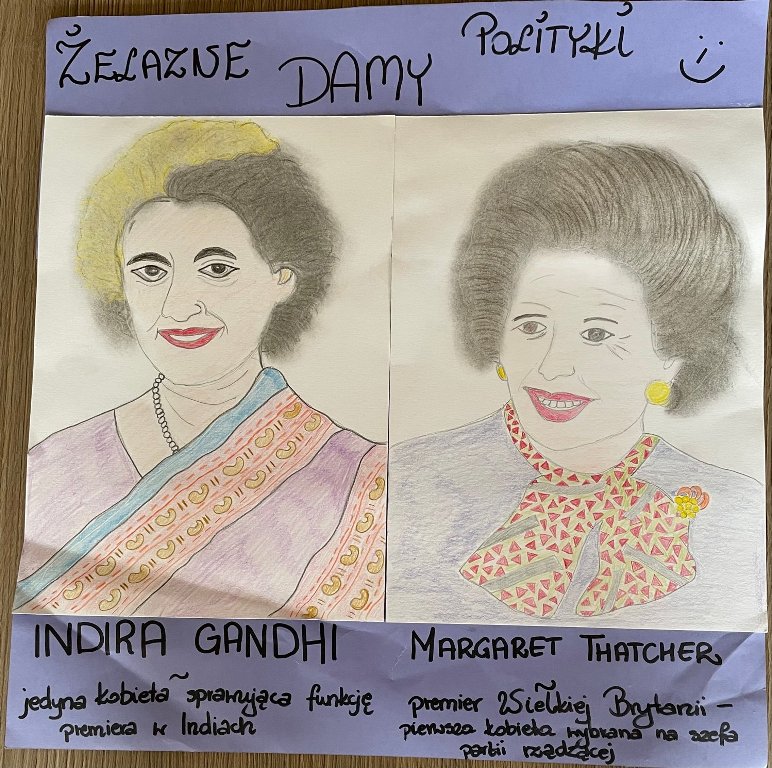 ŻELAZNE DAMY POLITYKI
INDIRA GANDHI
jedyna kobieta sprawująca funkcję
premiera w Indiach
MARGARET THATCHER
premier Wielkiej Brytanii –
pierwsza kobieta wybrana na szefa
partii rządzącej